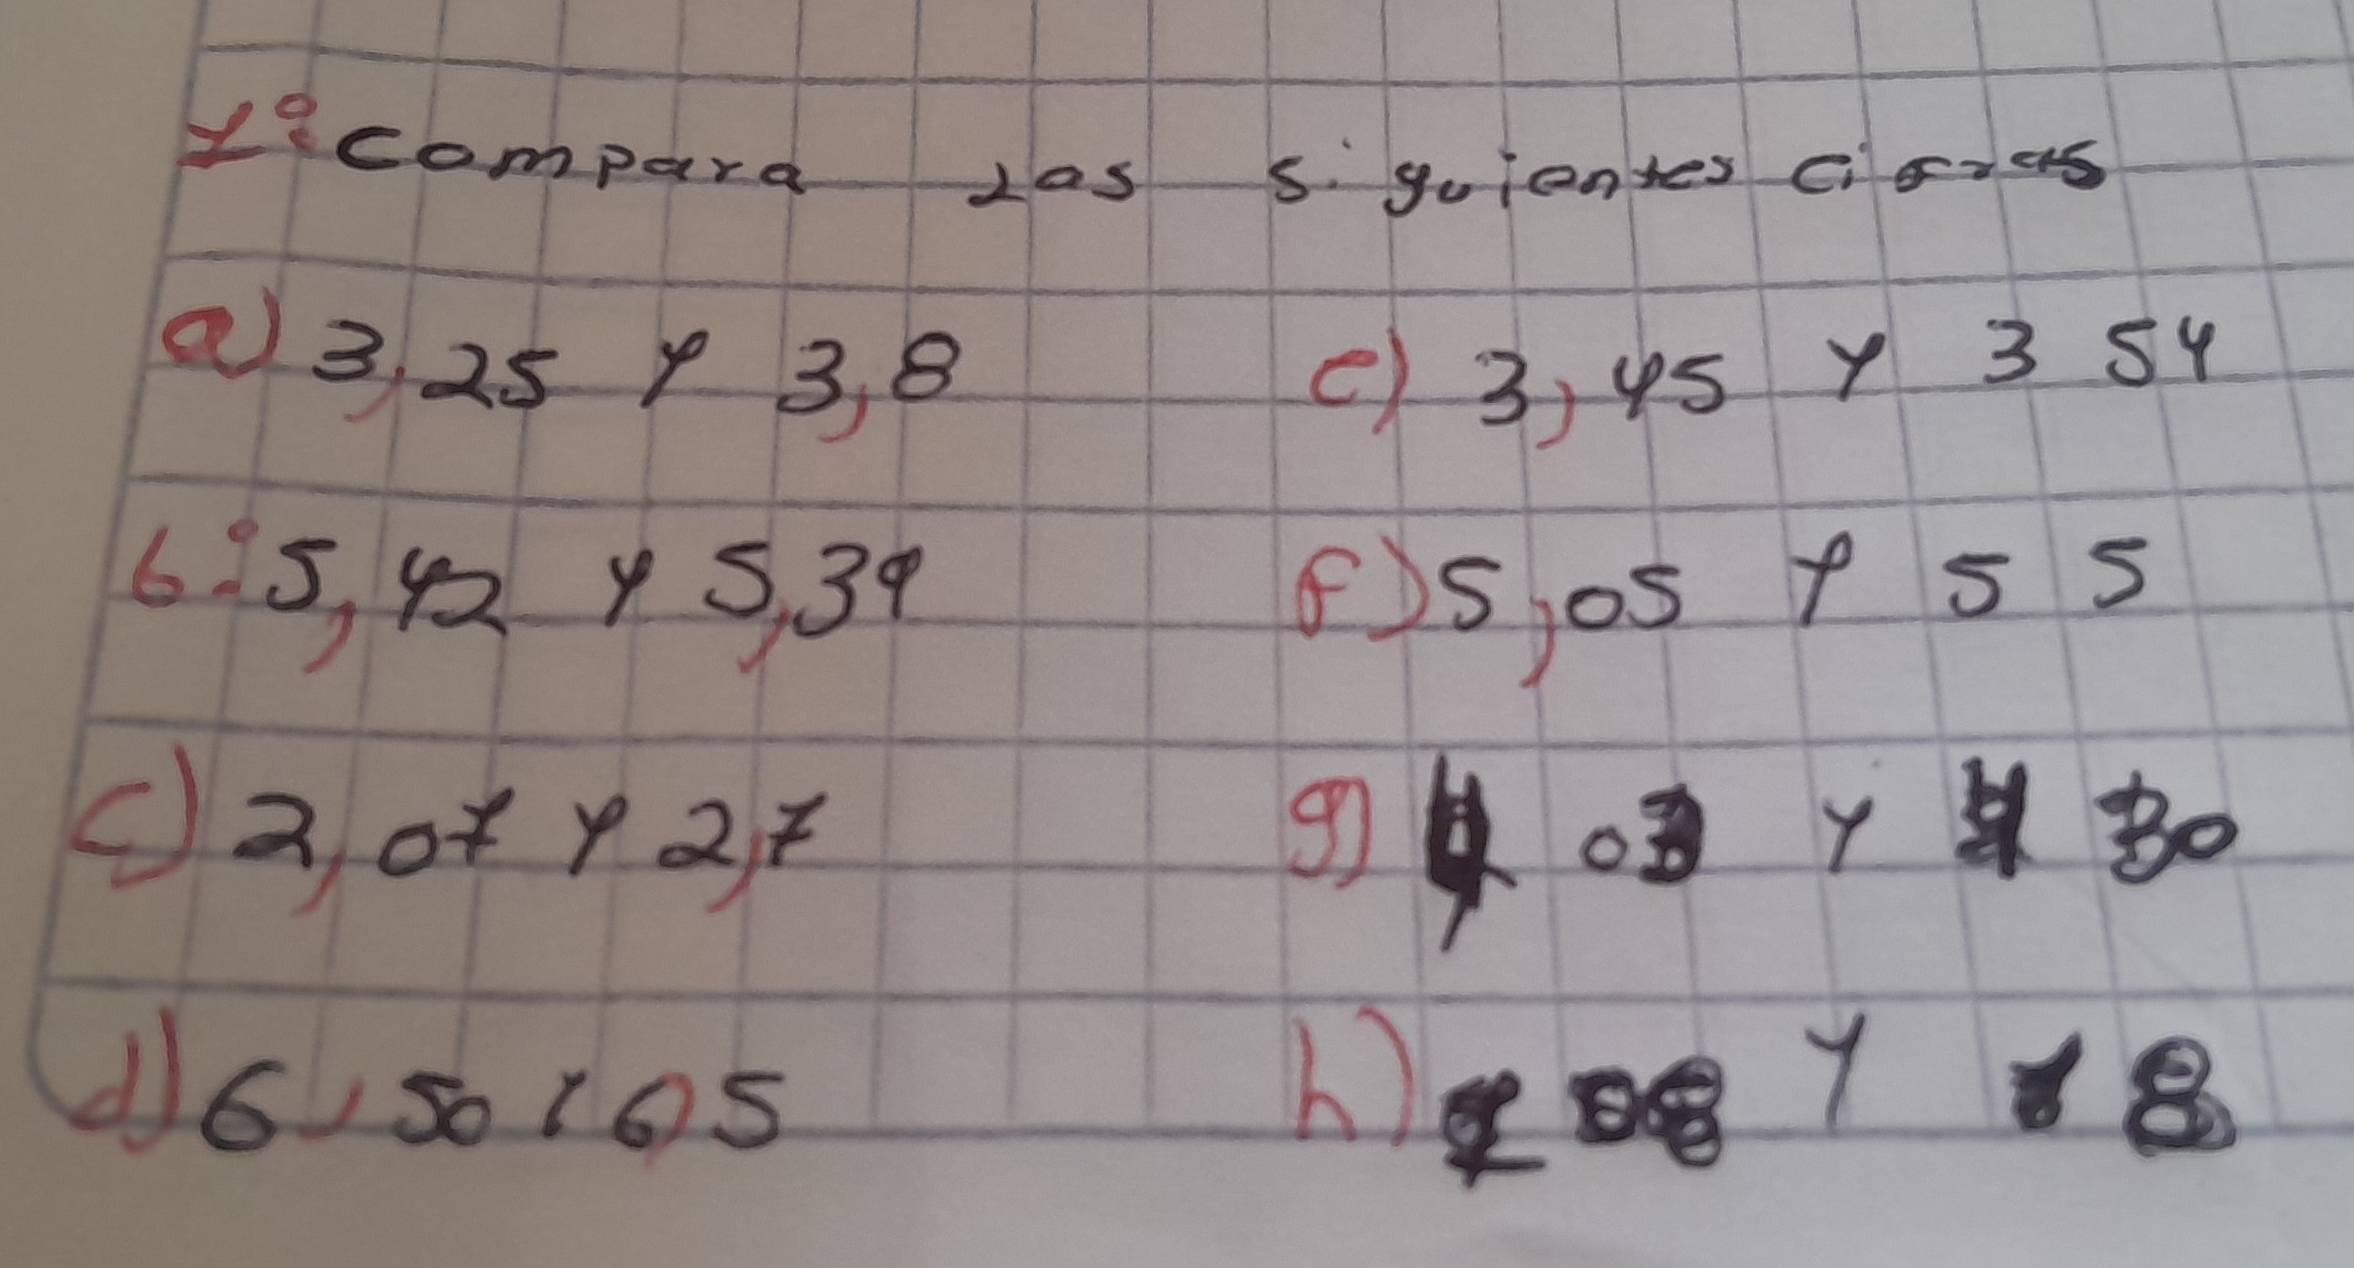 1: Compara Los siguientes cifras
a) 3,25 y 3,8
e) 3,45 y 3 54
b: 5,42 y 5,39
f) 5,05 y 5 5
c) 2,07 y 2,7
g) 4 03 y 4 30
d) 6,50 y 6,5
h) 08 y 8